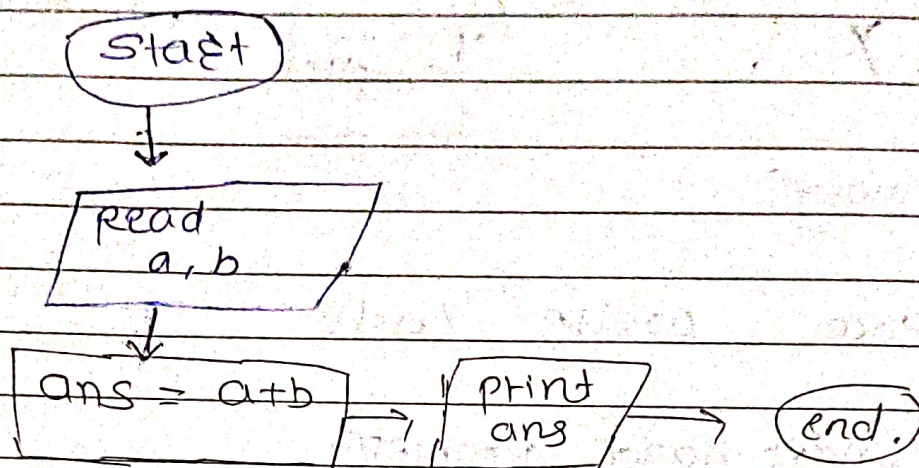 Start
Read
a, b
ans = a+b
print
ans
end.